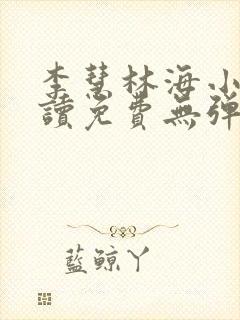 李慧林海小
讀免費無彈
藍鯨丫